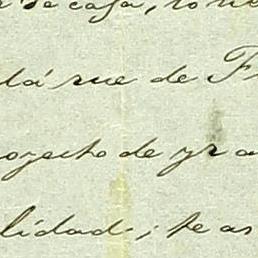 de casa, 
la rue de F
oyecto de yr a
lidad; te as